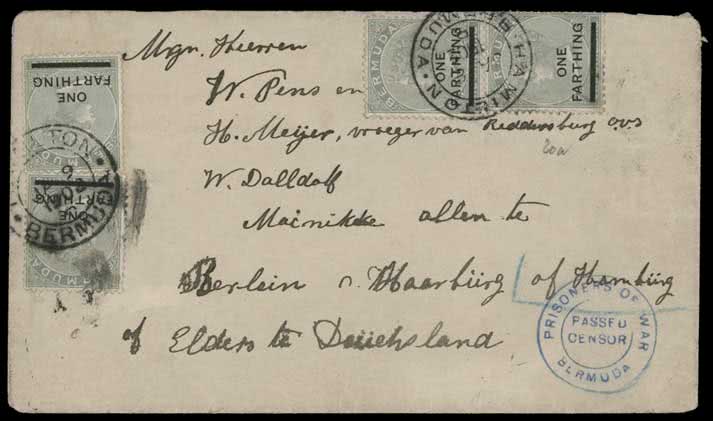 Mrgn. Heeren
W. Pens en
H. Meijer, vroeger van Reddersburg O.V.S
W. Dalldolf
allen te
Berlein n. Haarbürg of Hambürg
of Elders te Deüchsland
BERMUDA
ONE
FARTHING
ONE
FARTHING
HAMILTON
BERMUDA
ONE
FARTHING
BERMUDA
ONE
FARTHING
BERMUDA
TON
9
1902
BERMUDA
PRISONERS OF WAR
PASSED
CENSOR
BERMUDA